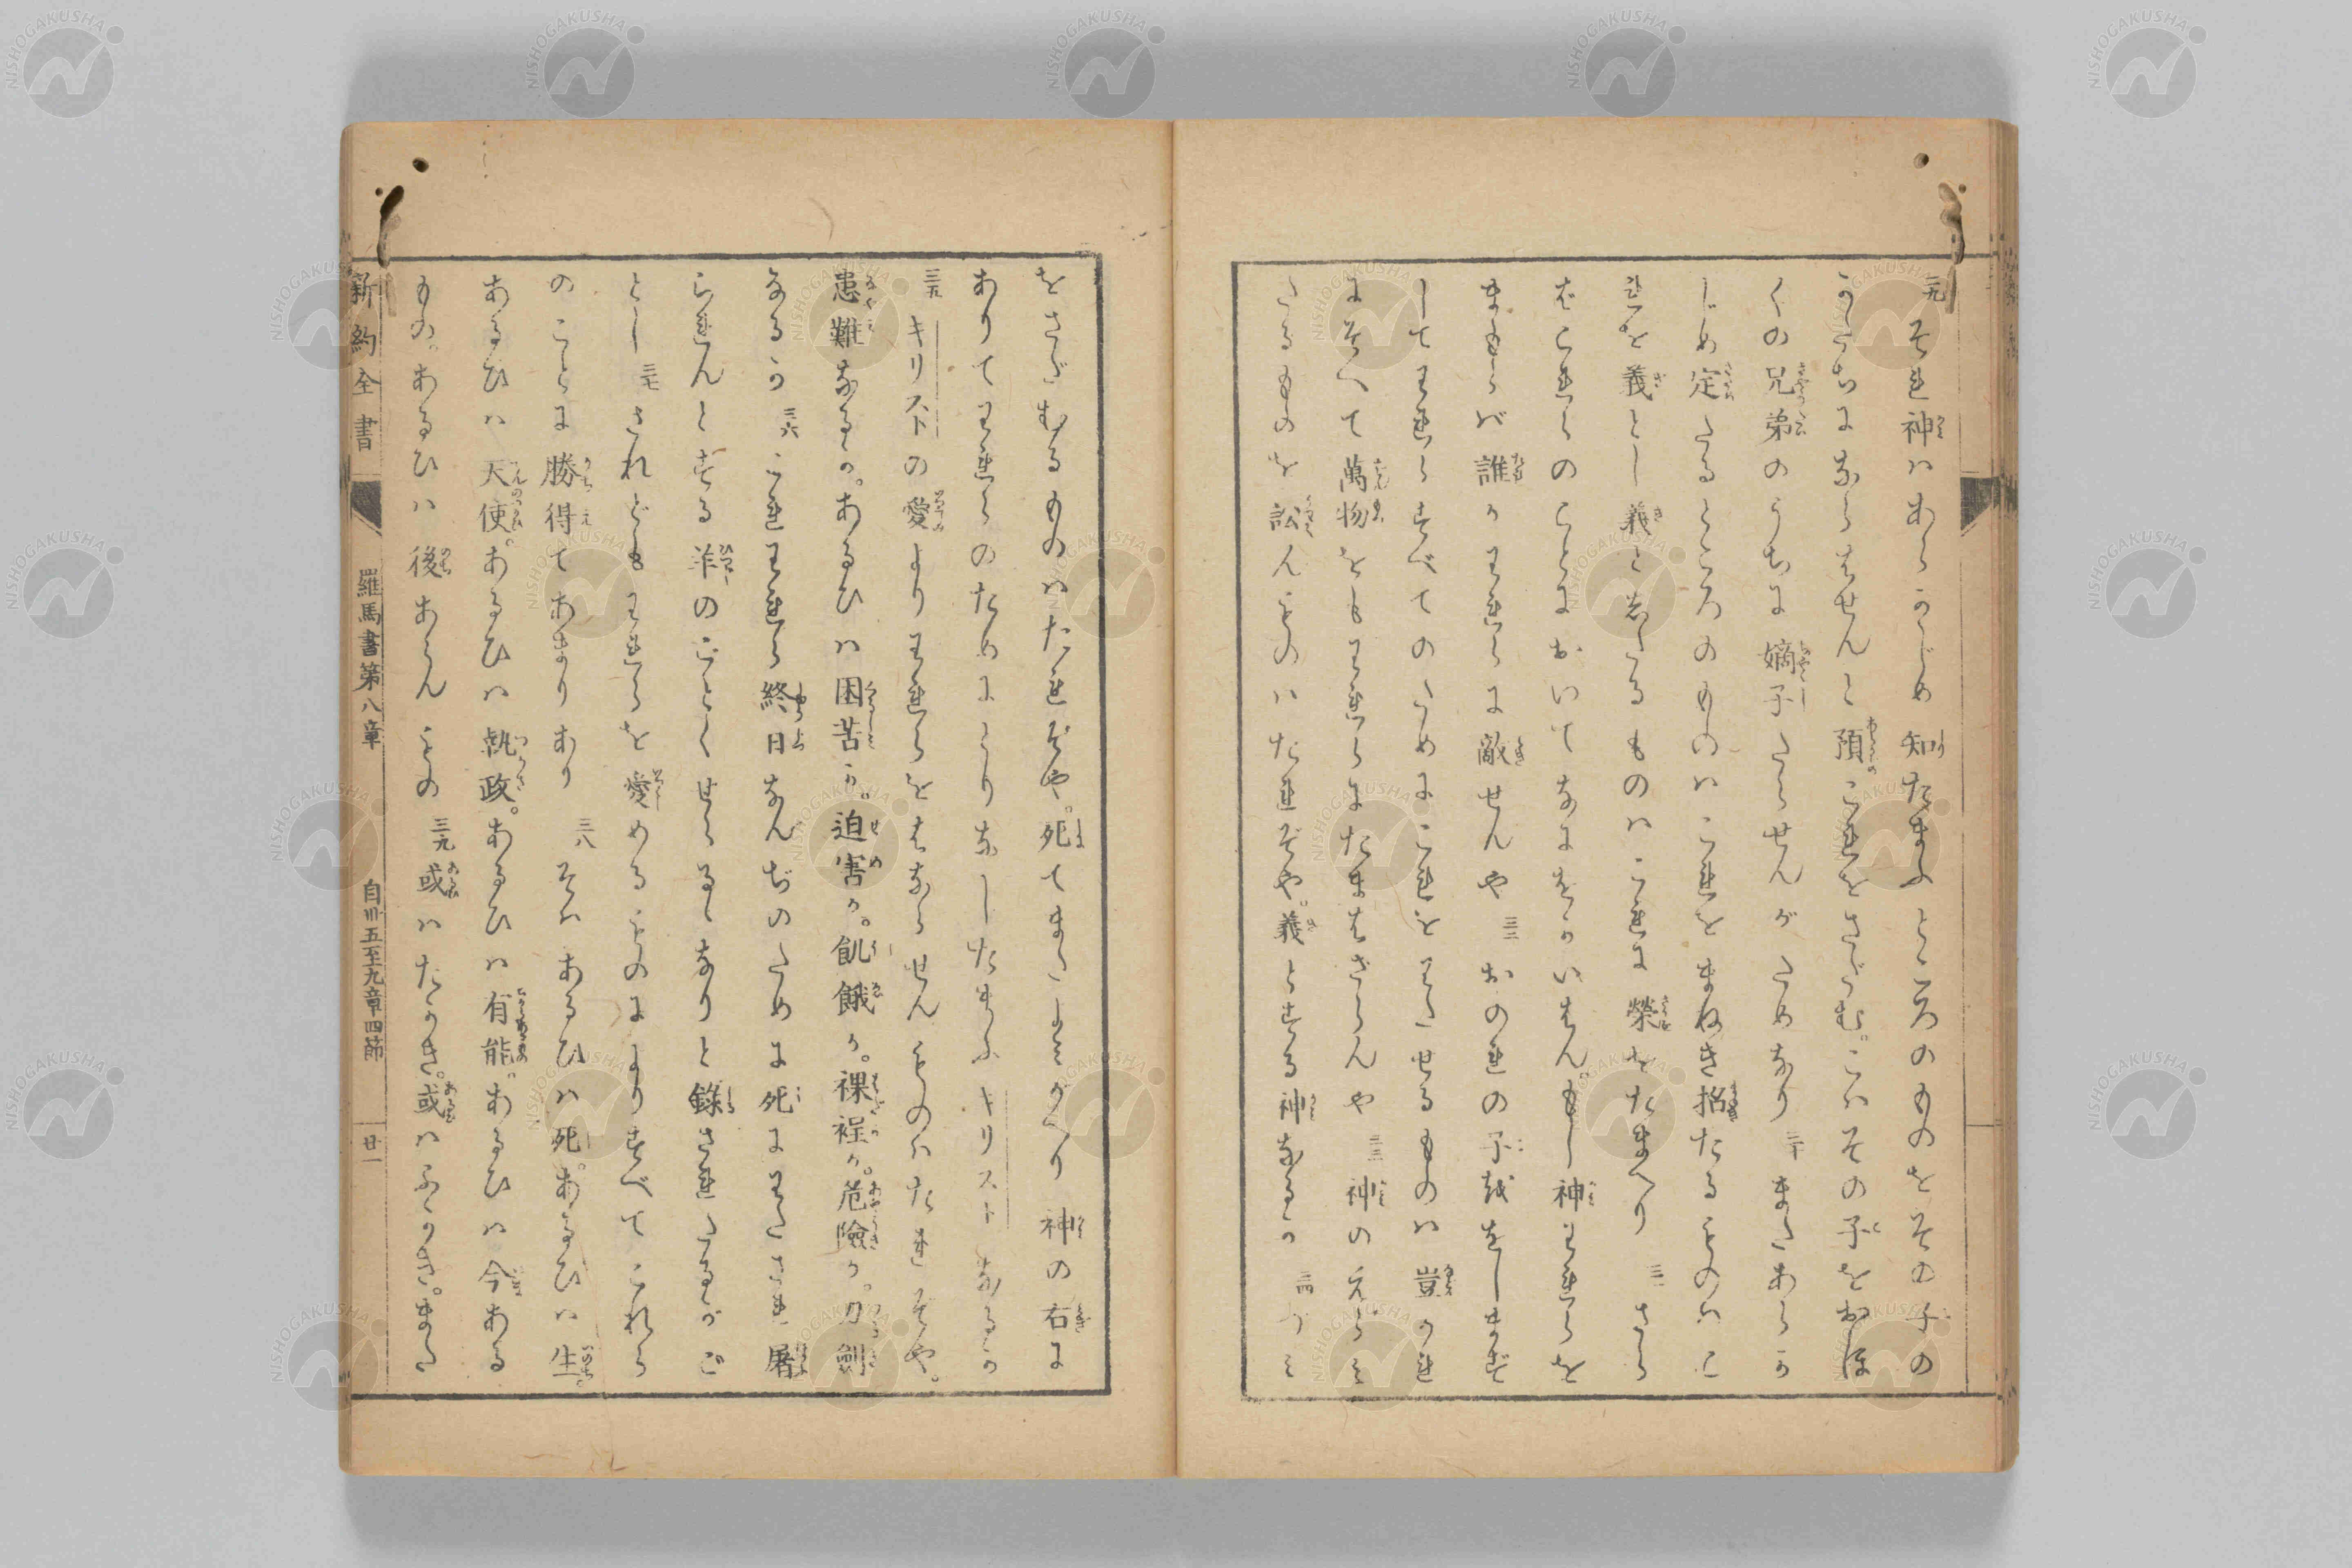 二九 それ神ハあらかじめ知たまふところのものをその子の
かたちにならはせんと預これをさだむ。こハその子をおほ
くの兄弟のうちに嫡子たらせんがためなり 三十 またあらか
じめ定たるところのものハこれをまねき招たるものハこ
れを義とし義と志たるものハこれに榮をたまへり 三一 さら
バこれらのことにおいてなにをかいはん。もし神われらを
まもらバ誰かわれらに敵せんや 三二 おのれの子をおしまず
してわれらすべてのためにこれをわたせるものハ豈かれ
にそへて萬物をもわれらにたまはざらんや 三三 神のえらみ
たるものを訟んものハたれぞや。義とする神なるか 三四 つみ
をさだむるものハたれぞや。死てまたよみがへり神の右に
ありてわれらのためにとりなしたまふキリストなるか
三五 キリストの愛よりわれらをはならせんものハたれぞや。
患難なるか。あるひハ困苦か。迫害か。飢餓か。裸裎か。危險か。刀劍
なるか 三六 これわれら終日なんぢのために死にわたされ屠
られんとする羊のごとくせらるゝなりと錄されたるがご
とし 三七 されどもわれらを愛めるものによりすべてこれら
のことに勝得てあまりあり 三八 そハあるひハ死。あるひハ生。
あるひハ天使。あるひハ執政。あるひハ有能。あるひハ今ある
もの。あるひハ後あらんもの 三九 或ハたかき。或ハふかき。また
新約全書 羅馬書第八章 自卅五至九章四節 廿一
NISHOGAKUSHA